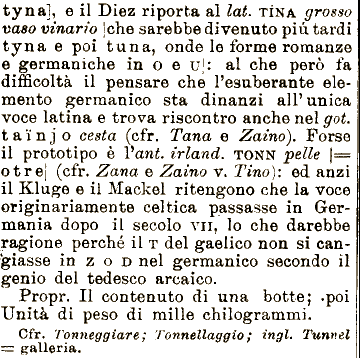 tyna], e il Diez riporta al lat. TÍNA grosso
vaso vinario |che sarebbe divenuto piú tardi
tyna e poi tuna, onde le forme romanze
e germaniche in O e U|: al che però fa
difficoltà il pensare che l'esuberante ele-
mento germanico sta dinanzi all'unica
voce latina e trova riscontro anche nel got.
tainjo cesta (cfr. Tana e Zaino). Forse
il prototipo è l'ant. irland. TONN pelle |=
otre| (cfr. Zana e Zaino v. Tino): ed anzi
il Kluge e il Mackel ritengono che la voce
originariamente celtica passasse in Ger-
mania dopo il secolo VII, lo che darebbe
ragione perché il T del gaelico non si can-
giasse in Z O D nel germanico secondo il
genio del tedesco arcaico.
Propr. Il contenuto di una botte; .poi
Unità di peso di mille chilogrammi.
Cfr. Tonneggiare; Tonnellaggio; ingl. Tunnel
= galleria.